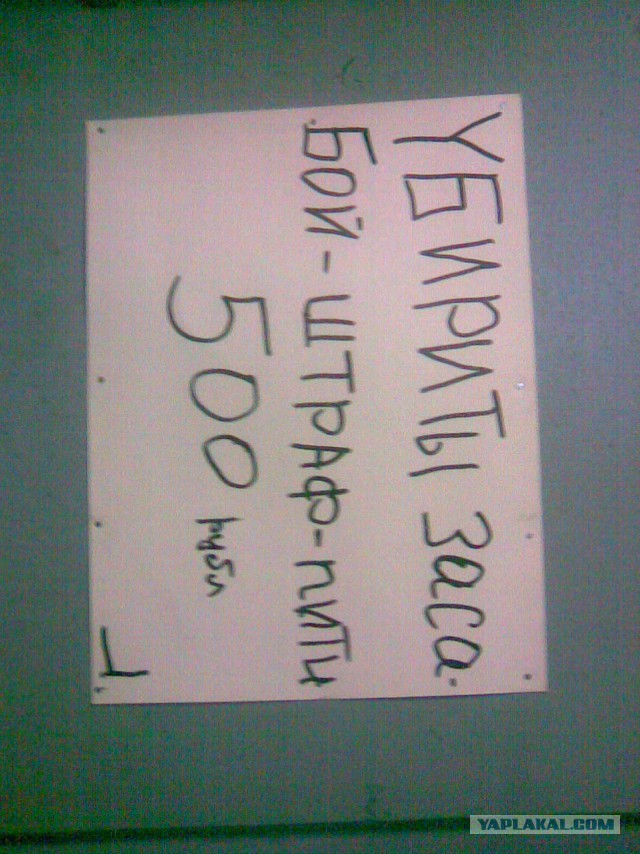 УБИРИТЫ Заса.
БОЙ - ШТРАФ-ПИТИ
500 рубл
YAPLAKAL.COM